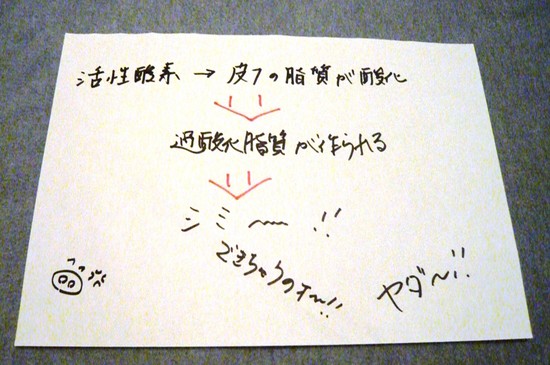 活性酸素 → 皮フの脂質が酸化
過酸化脂質が作られる
シミ〜!!
できちゃうのオ〜!!
ヤダ〜!!